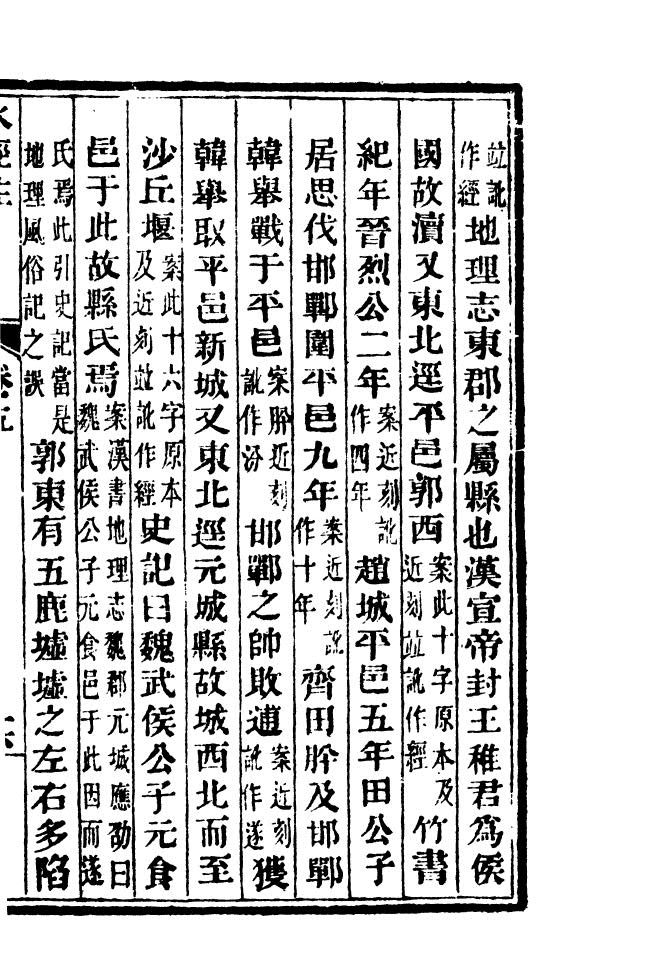 竝訛作經地理志東郡之屬縣也漢宣帝封王稚君爲侯
國故瀆又東北逕平邑郭西案此十字原本及近刻竝訛作經竹書
紀年晉烈公二年案近刻訛作四年趙城平邑五年田公子
居思伐邯鄲圍平邑九年案近刻訛作十年齊田肸及邯鄲
韓舉戰于平邑案肸近刻訛作汾邯鄲之帥敗逋案近刻訛作遂獲
韓舉取平邑新城又東北逕元城縣故城西北而至
沙丘堰案此十六字原本及近刻竝訛作經史記曰魏武侯公子元食
邑于此故縣氏焉案漢書地理志魏郡元城應劭曰魏武侯公子元食邑于此因而遂
氏焉此引史記當是地理風俗記之誤郭東有五鹿墟墟之左右多陷
水經注
卷五